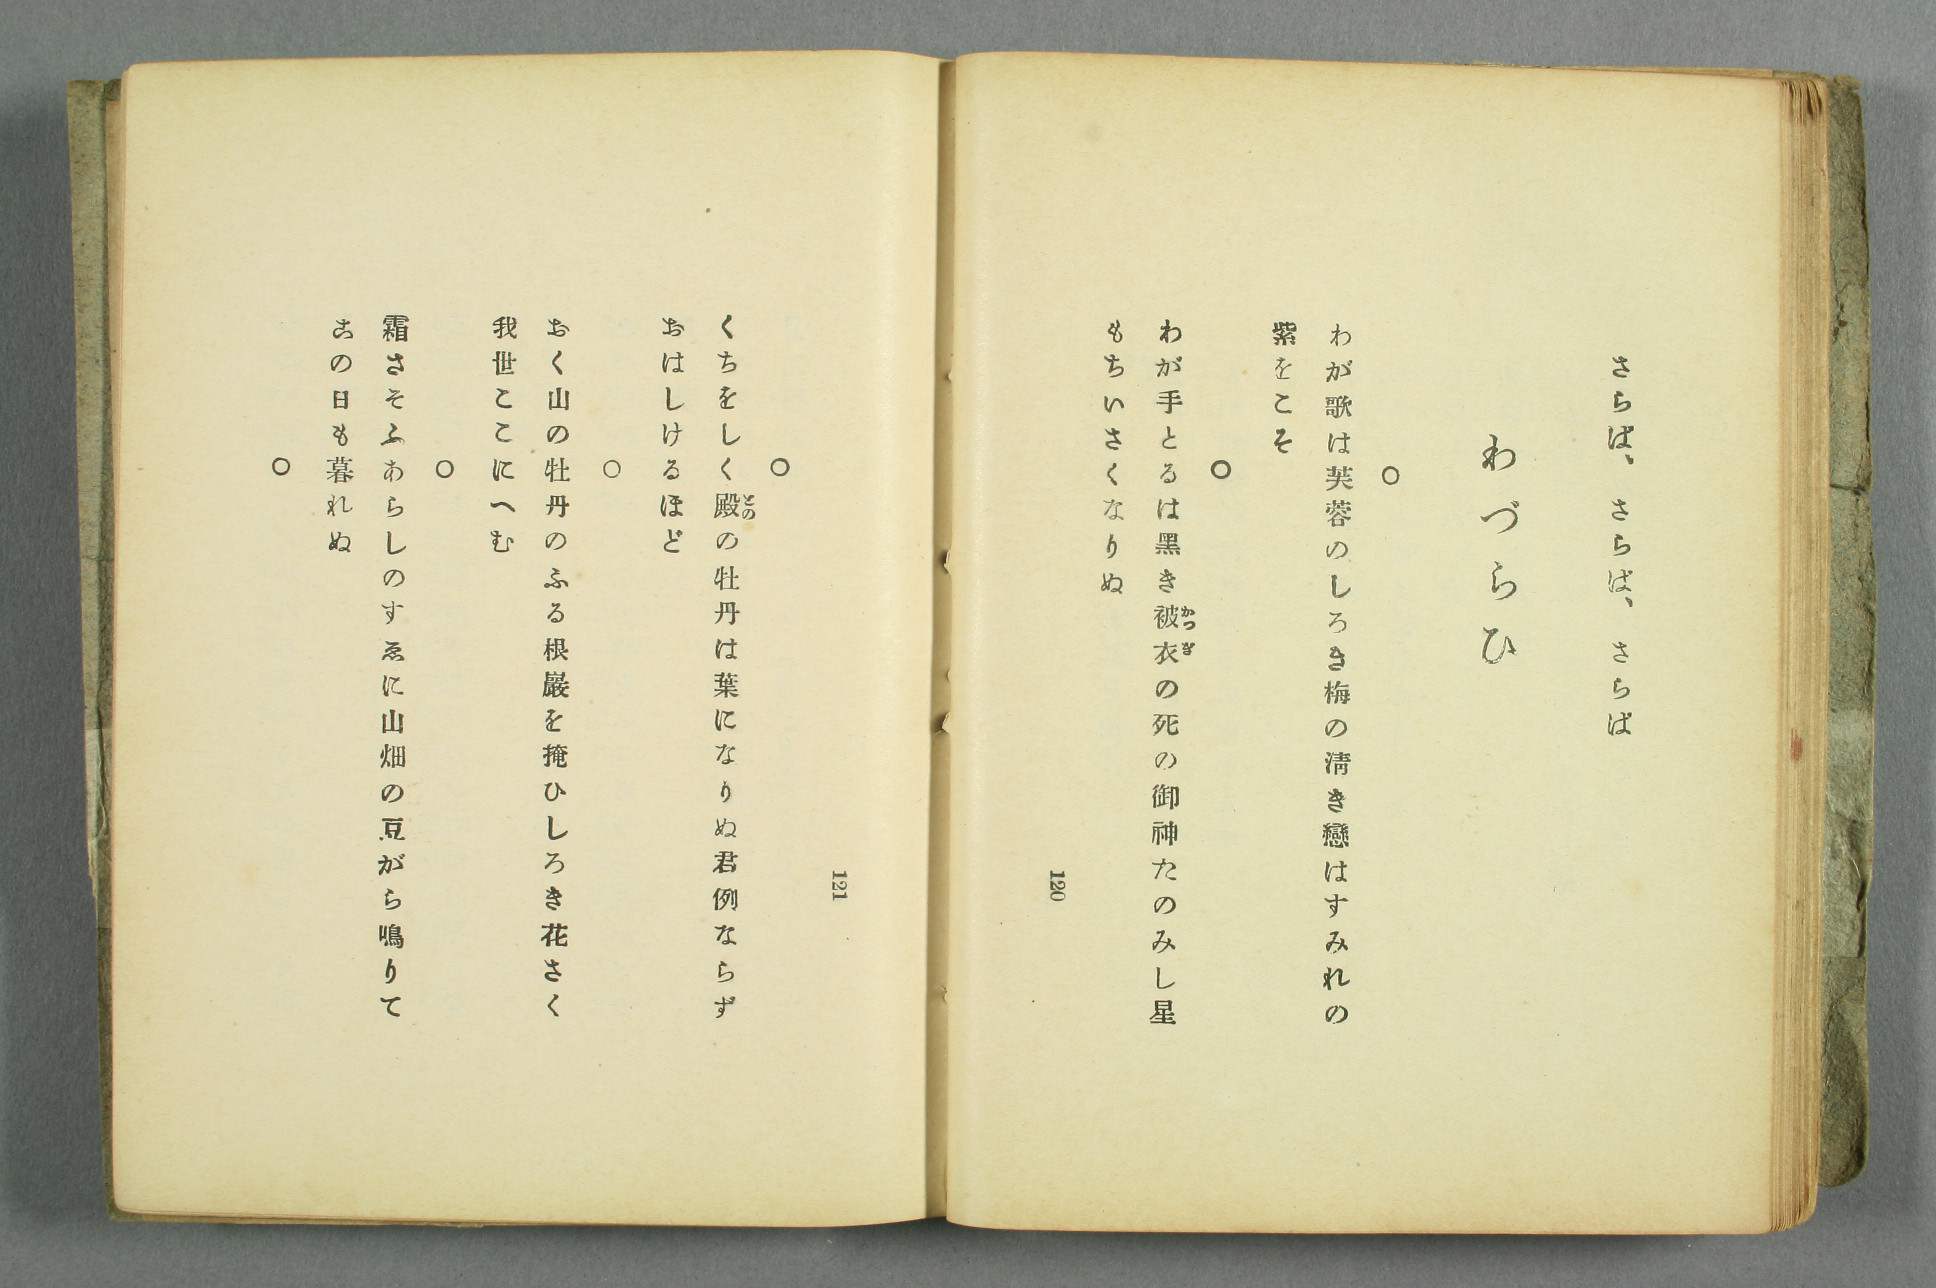 さらば、さらば、さらば
わづらひ
○
わが歌は芙蓉のしろき梅の淸き戀はすみれの
紫をこそ
○
わが手とるは黑き被衣の死の御神たのみし星
かつぎ
もちいさくなりぬ
120
121
○
くちをしく殿の牡丹は葉になりぬ君例ならず
との
おはしけるほど
○
おく山の牡丹のふる根巖を掩ひしろき花さく
我世ここにへむ
○
霜さそふあらしのすゑに山畑の豆がら鳴りて
この日も暮れぬ
○